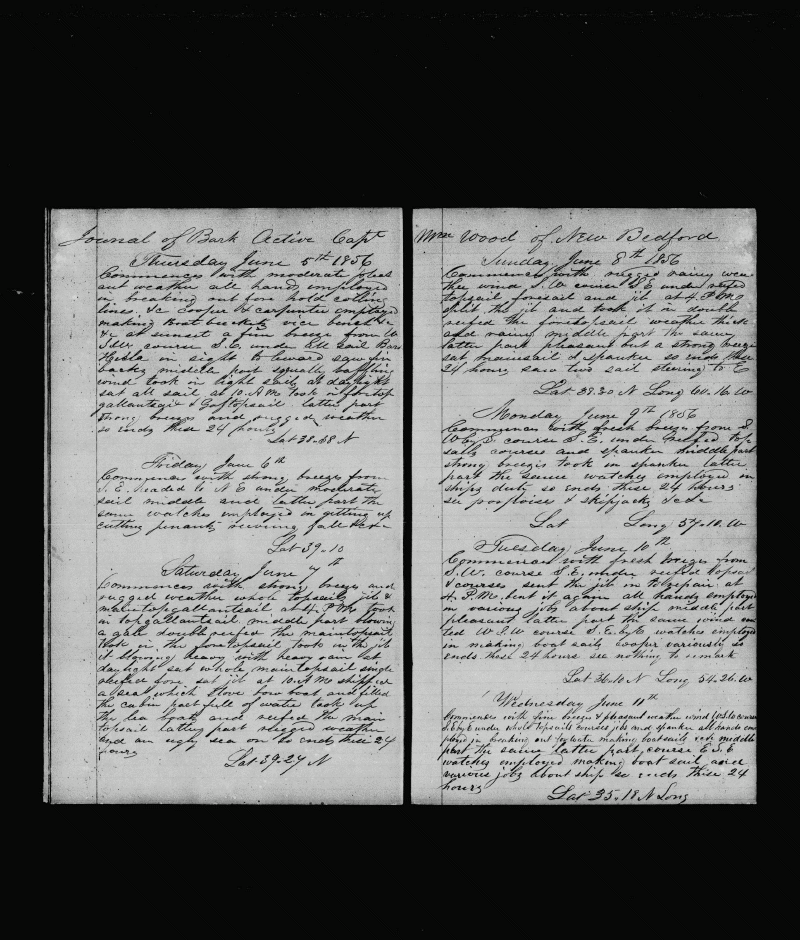 Journal of Bark Active Capt
Thursday June 5th 1856
Commences with moderate pleas
ant weather all hands employed
in breaking out fore hold coiling
lines &c Cooper & carpenter employed
making boat buckets vice bench &c
& at sunset a fine breeze from W
course S.E. under all sail Bark
Hecla in sight to leward saw fin
backs middle part squally baffling
wind took in light sails at daylight
sat all sail at 10 A.M. took in foretop
gallantsail & Gaftopsail latter part
strong breeze and rugged weather
so ends these 24 hours
Lat 38-58 N
Friday June 6th
Commences with strong breezes from
S.E. headed to N.E under moderate
sail middle and latter part the
same watches employed in getting up
cutting penants reeving falls &c&c
Lat 39-10
Saturday June 7th
Commences with strong breeze and
rugged weather whole topsails jib &
maintopgallantsail at 4. P.M. took
in topgallantsail middle part blowing
a gale double reefed the maintopsail
took in the foretopsail took in the jib
it blowing heavy with heavy rain at
daylight sat whole maintopsail single
reefed fore sat jib at 10. A.M. shipped
a sea which stove bow boat and filled
the cabin part full of water took up
the lea boats and reefed the main
topsail latter part rugged weather
and an ugly sea on so ends these 24
hours
Lat 39-27 N
Wood of New Bedford
Sunday June 8th 1856
Commences with rugged rainy wea
ther wind S.W course S.E under reefed
topsail foresail and jib at 4. P.M.
split the jib and took it in double
reefed the foretopsail weather thick
and rainy middle part the same
latter part pleasant but a strong breeze
sat mainsail & spanker so ends these
24 hours saw two sail steering to E
Lat 39.30 N Long 60.16. W
Monday June 9th 1856
Commences with fresh breezes from S
W by S course S.E. under reefed top
sails courses and spanker middle part
strong breezes took in spanker latter
part the same watches employed in
ships duty so ends these 24 hours
see porpoise & skipjacks &c&c
Lat Long 57-10. W
Tuesday June 10th
Commences with fresh breezes from
S.W. course S.E. under reefed topsail
& courses sent the jib in to repair at
4. P.M. bent it again all hands employed
in various jobs about ship middle part
pleasant latter part the same wind en
ded W.S.W course S.E.byE watches employed
in making boat sails cooper variously so
ends these 24 hours see nothing to remark
Lat 36-10 N Long 54-26. W
Wednesday June 11th
Commences with fine breeze & pleasant weather wind course
S.EbyE under whole topsails courses jib and spanker all hands em
ployed in breaking out making boat sails &c&c middle
part the same latter part course E.S.E
watches employed making boat sail and
various jobs about ship so ends these 24
hours
Lat 35-18 N Long